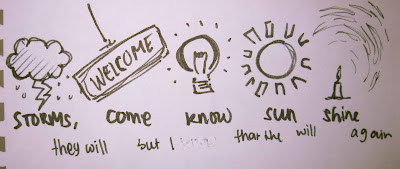 WELCOME
STORMS, come know sun shine
they will but I that the will again